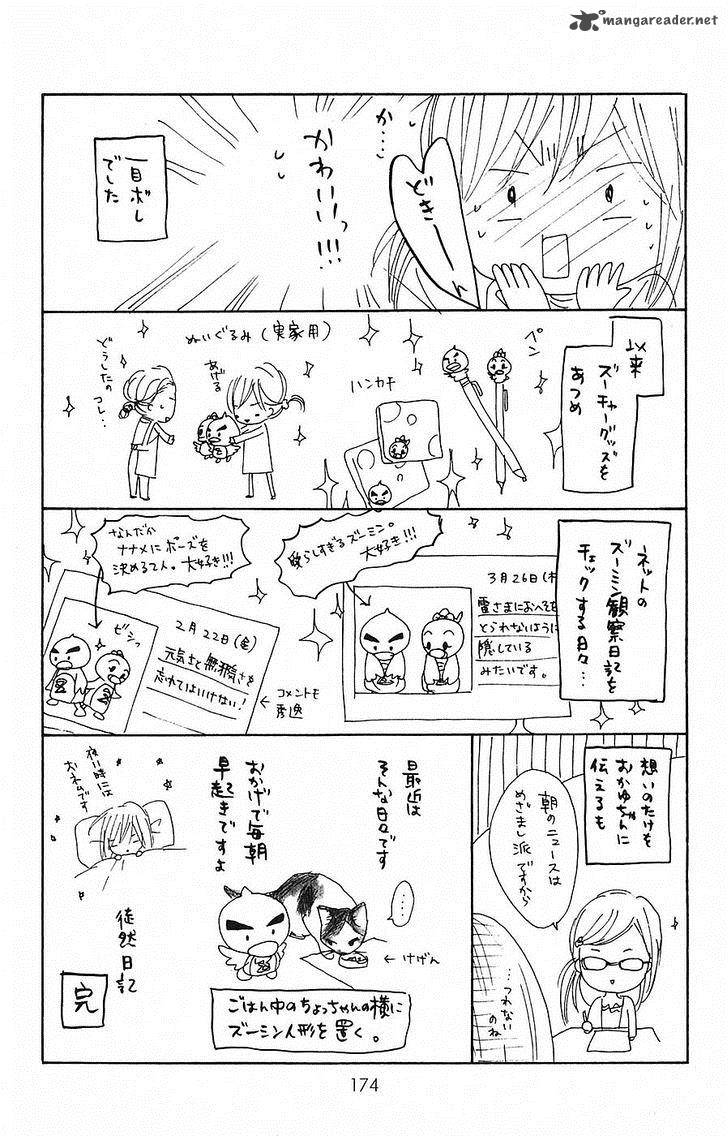 mangareader.net
どきーーん
か…
かわいいっ!!!
一目ボレ
でした
以来
ズーチャーグッズを
あつめ
ペン
ハンカチ
ぬいぐるみ(実家用)
あげる
どうしたの
コレ..
ネットの
ズーミン観察日記を
チェックする日々…
3月26日(木)
雷さまにおへそを
とられないように
隠している
みたいです。
愛らしすぎるズーミン。
大好き!!!
なんだか
ナナメにポーズを
決める2人。大好き!!!
2月22日(金)
元気さと無邪気さを
忘れてはいけない!
ビシッ
←コメントも
秀逸
想いのたけを
おかゆちゃんに
伝えるも
朝のニュースは
めざまし派ですから
…つれない
のね
最近は
そんな日々です
おかげで毎朝
早起きですよ
…
←けげん
ごはん中のちょっちゃんの横に
ズーミン人形を置く。
夜い時には
おネムです
徒然日記
完
174